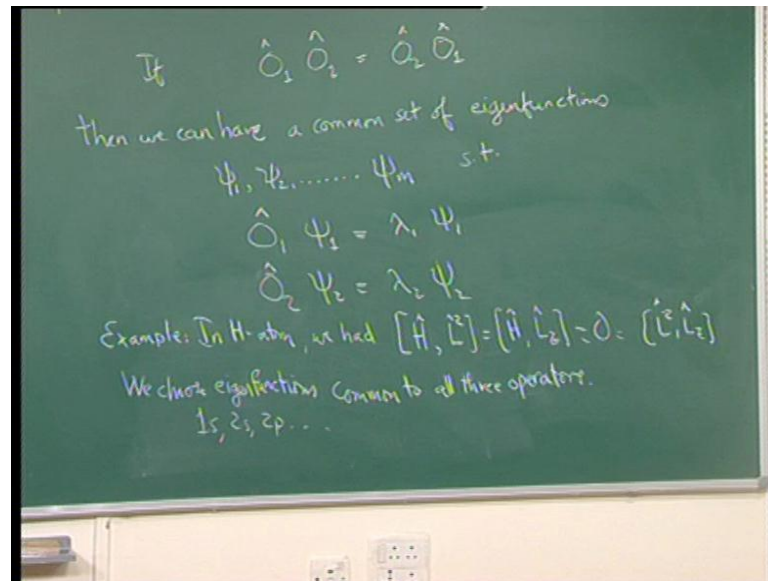 If Ô₁ Ô₂ = Ô₂ Ô₁
then we can have a common set of eigenfunctions
Ψ₁, Ψ₂, ....... Ψₘ s.t.
Ô₁ Ψ₁ = λ₁ Ψ₁
Ô₂ Ψ₂ = λ₂ Ψ₂
Example: In H-atom, we had [Ĥ, L̂²] = [Ĥ, L̂z] = 0 = [L̂², L̂z]
We chose eigenfunctions common to all three operators.
1s, 2s, 2p ....